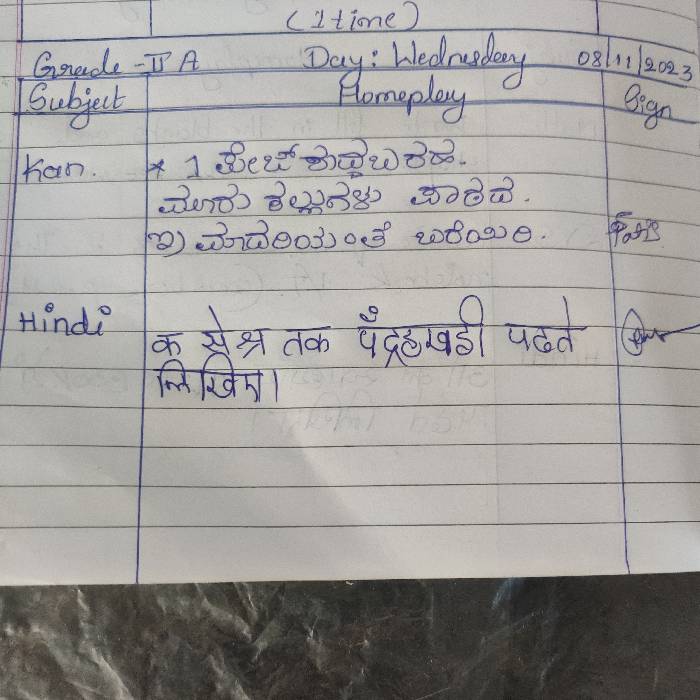 (1 time)
Grade - II A Day: Wednesday 08/11/2023
Subject Homeplay Sign
Kan. * 1 ಪೇಜ್ ಶುದ್ಧಬರಹ.
ಮೂರು ಕಲ್ಲುಗಳು ಪಾಠದ.
ಇ) ಮಾದರಿಯಂತೆ ಬರೆಯಿರಿ.
Hindi क से श्र तक पँद्रहखडी पढते
लिखिए।